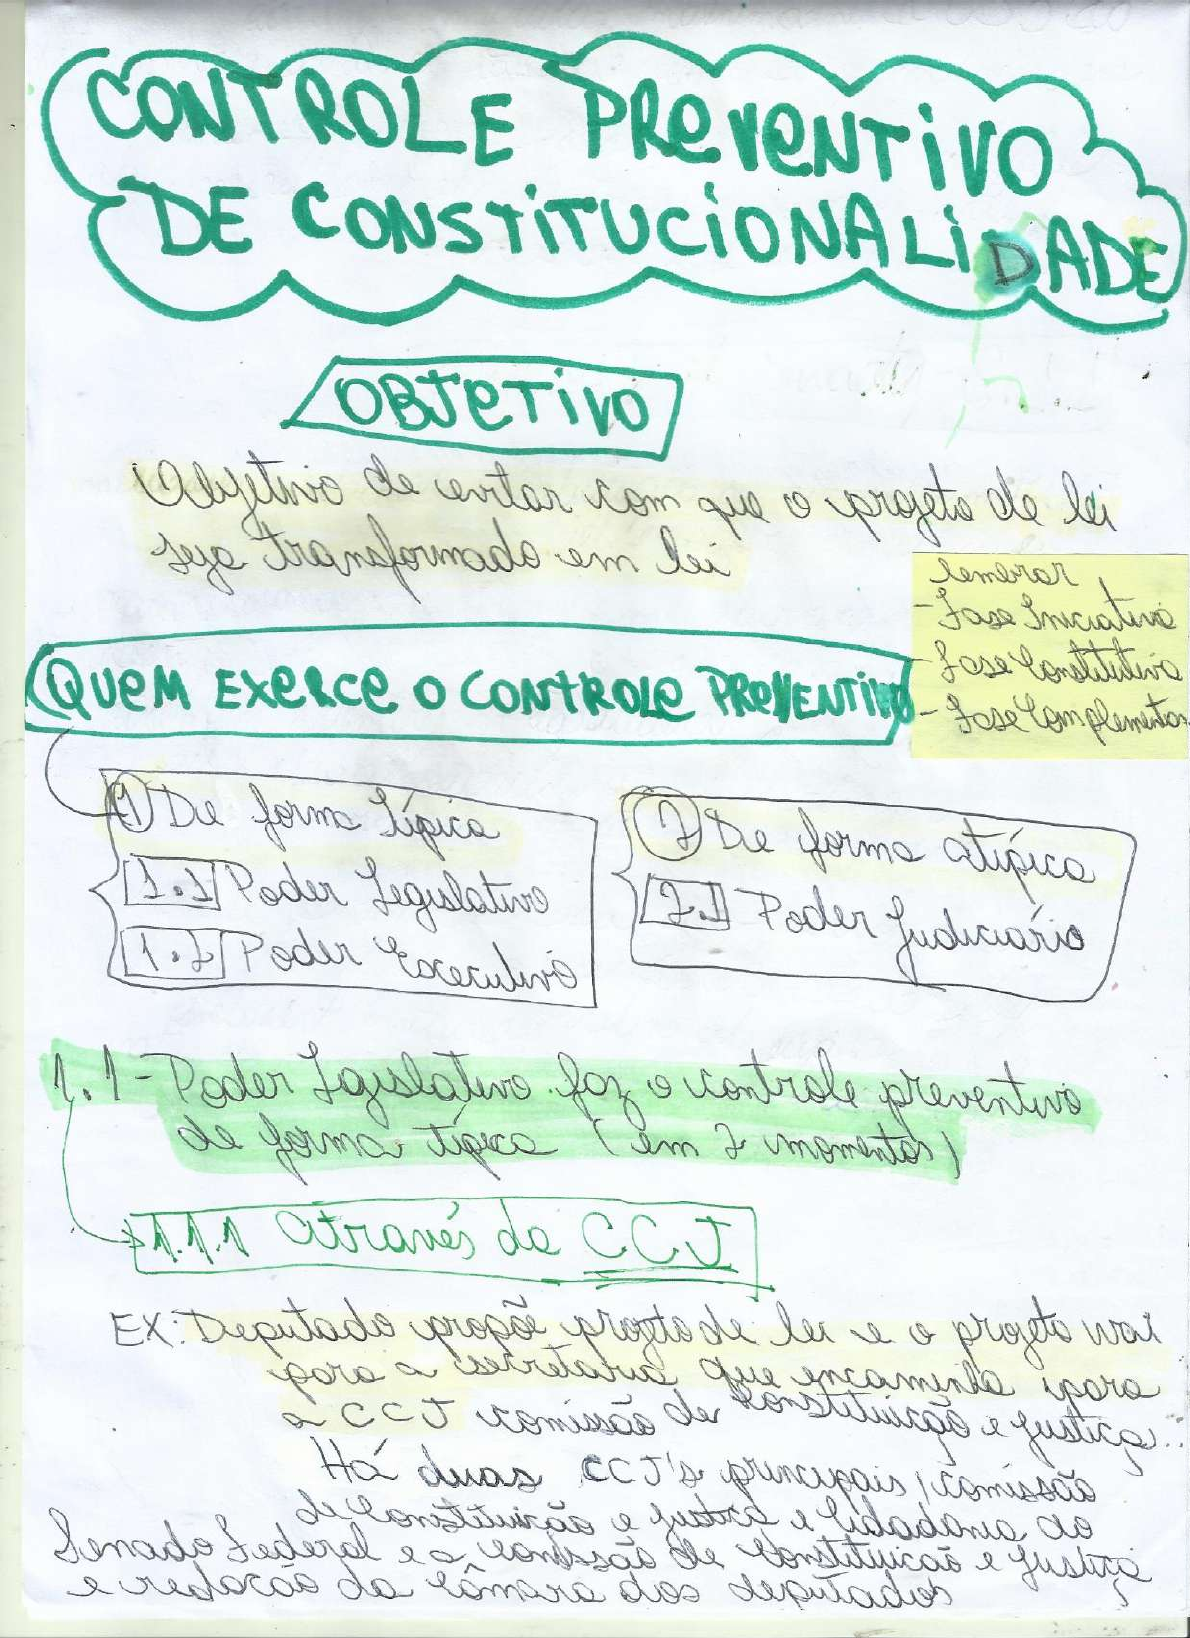 CONTROLE PREVENTIVO
DE CONSTITUCIONALIDADE
OBJETIVO
Objetivo de evitar com que o projeto de lei
seja transformado em lei
lembrar
- Fase Iniciativa
- Fase Constitutiva
- Fase Complementar
QUEM EXERCE O CONTROLE PREVENTIVO
1 De forma típica
1.1 Poder Legislativo
1.2 Poder Executivo
2 De forma atípica
2.1 Poder Judiciário
1.1 - Poder Legislativo faz o controle preventivo
de forma típica (em 2 momentos)
1.1.1 Através da CCJ
EX: Deputado propõe projeto de lei e o projeto vai
para a secretaria que encaminha para
a CCJ comissão de Constituição e Justiça...
Há duas CCJ's principais, comissão
de Constituição e Justiça e Cidadania do
Senado Federal e a comissão de Constituição e Justiça
e redação da Câmara dos deputados